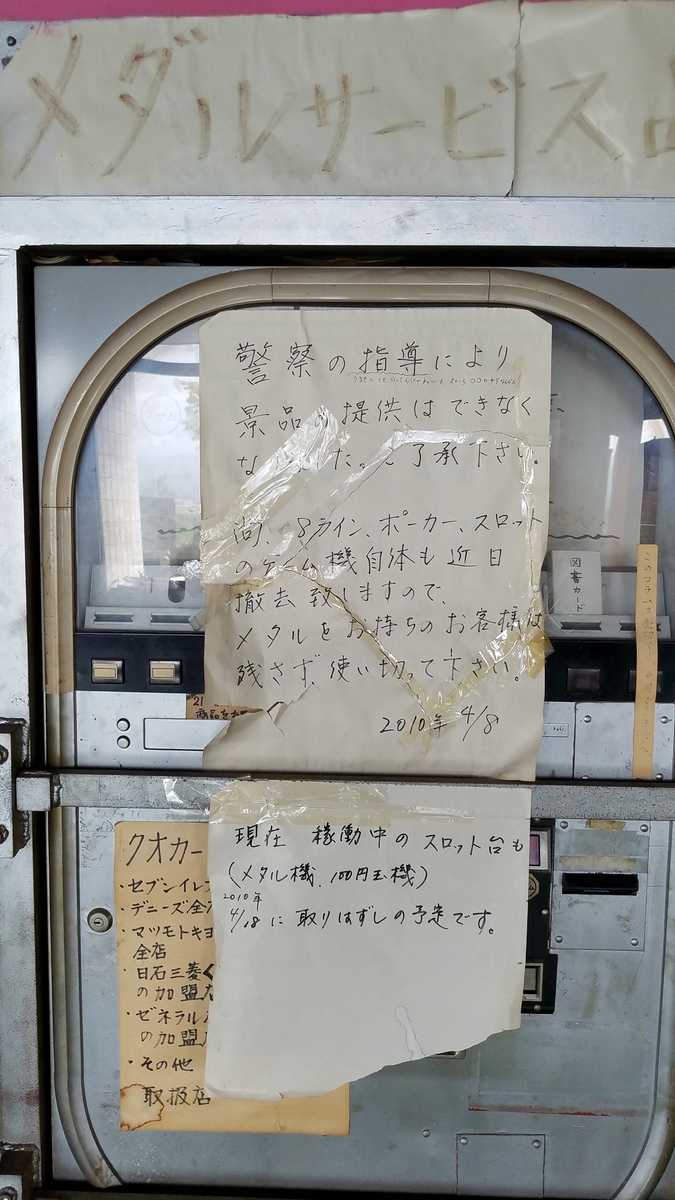 メダルサービス
警察の指導により
景品の提供はできなく
な た。ご了承下さい。
尚、8ライン、ポーカー、スロット
のゲーム機自体も近日
撤去致しますので、
メタルをお持ちのお客様は
残さず、使い切って下さい。
2010年 4/8
図書カード
21
現在 稼働中の スロット台も
(メタル機、100円玉機)
2010年
4/18に 取りはずしの予定です。
クオカー
・セブンイレ
・デニーズ全
・マツモトキヨ
全店
・日石三菱
の加盟
・ゼネラル
の加盟
・その他
取扱店